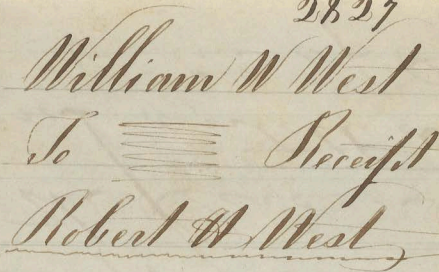 2827
William W West
To Receipt
Robert H West